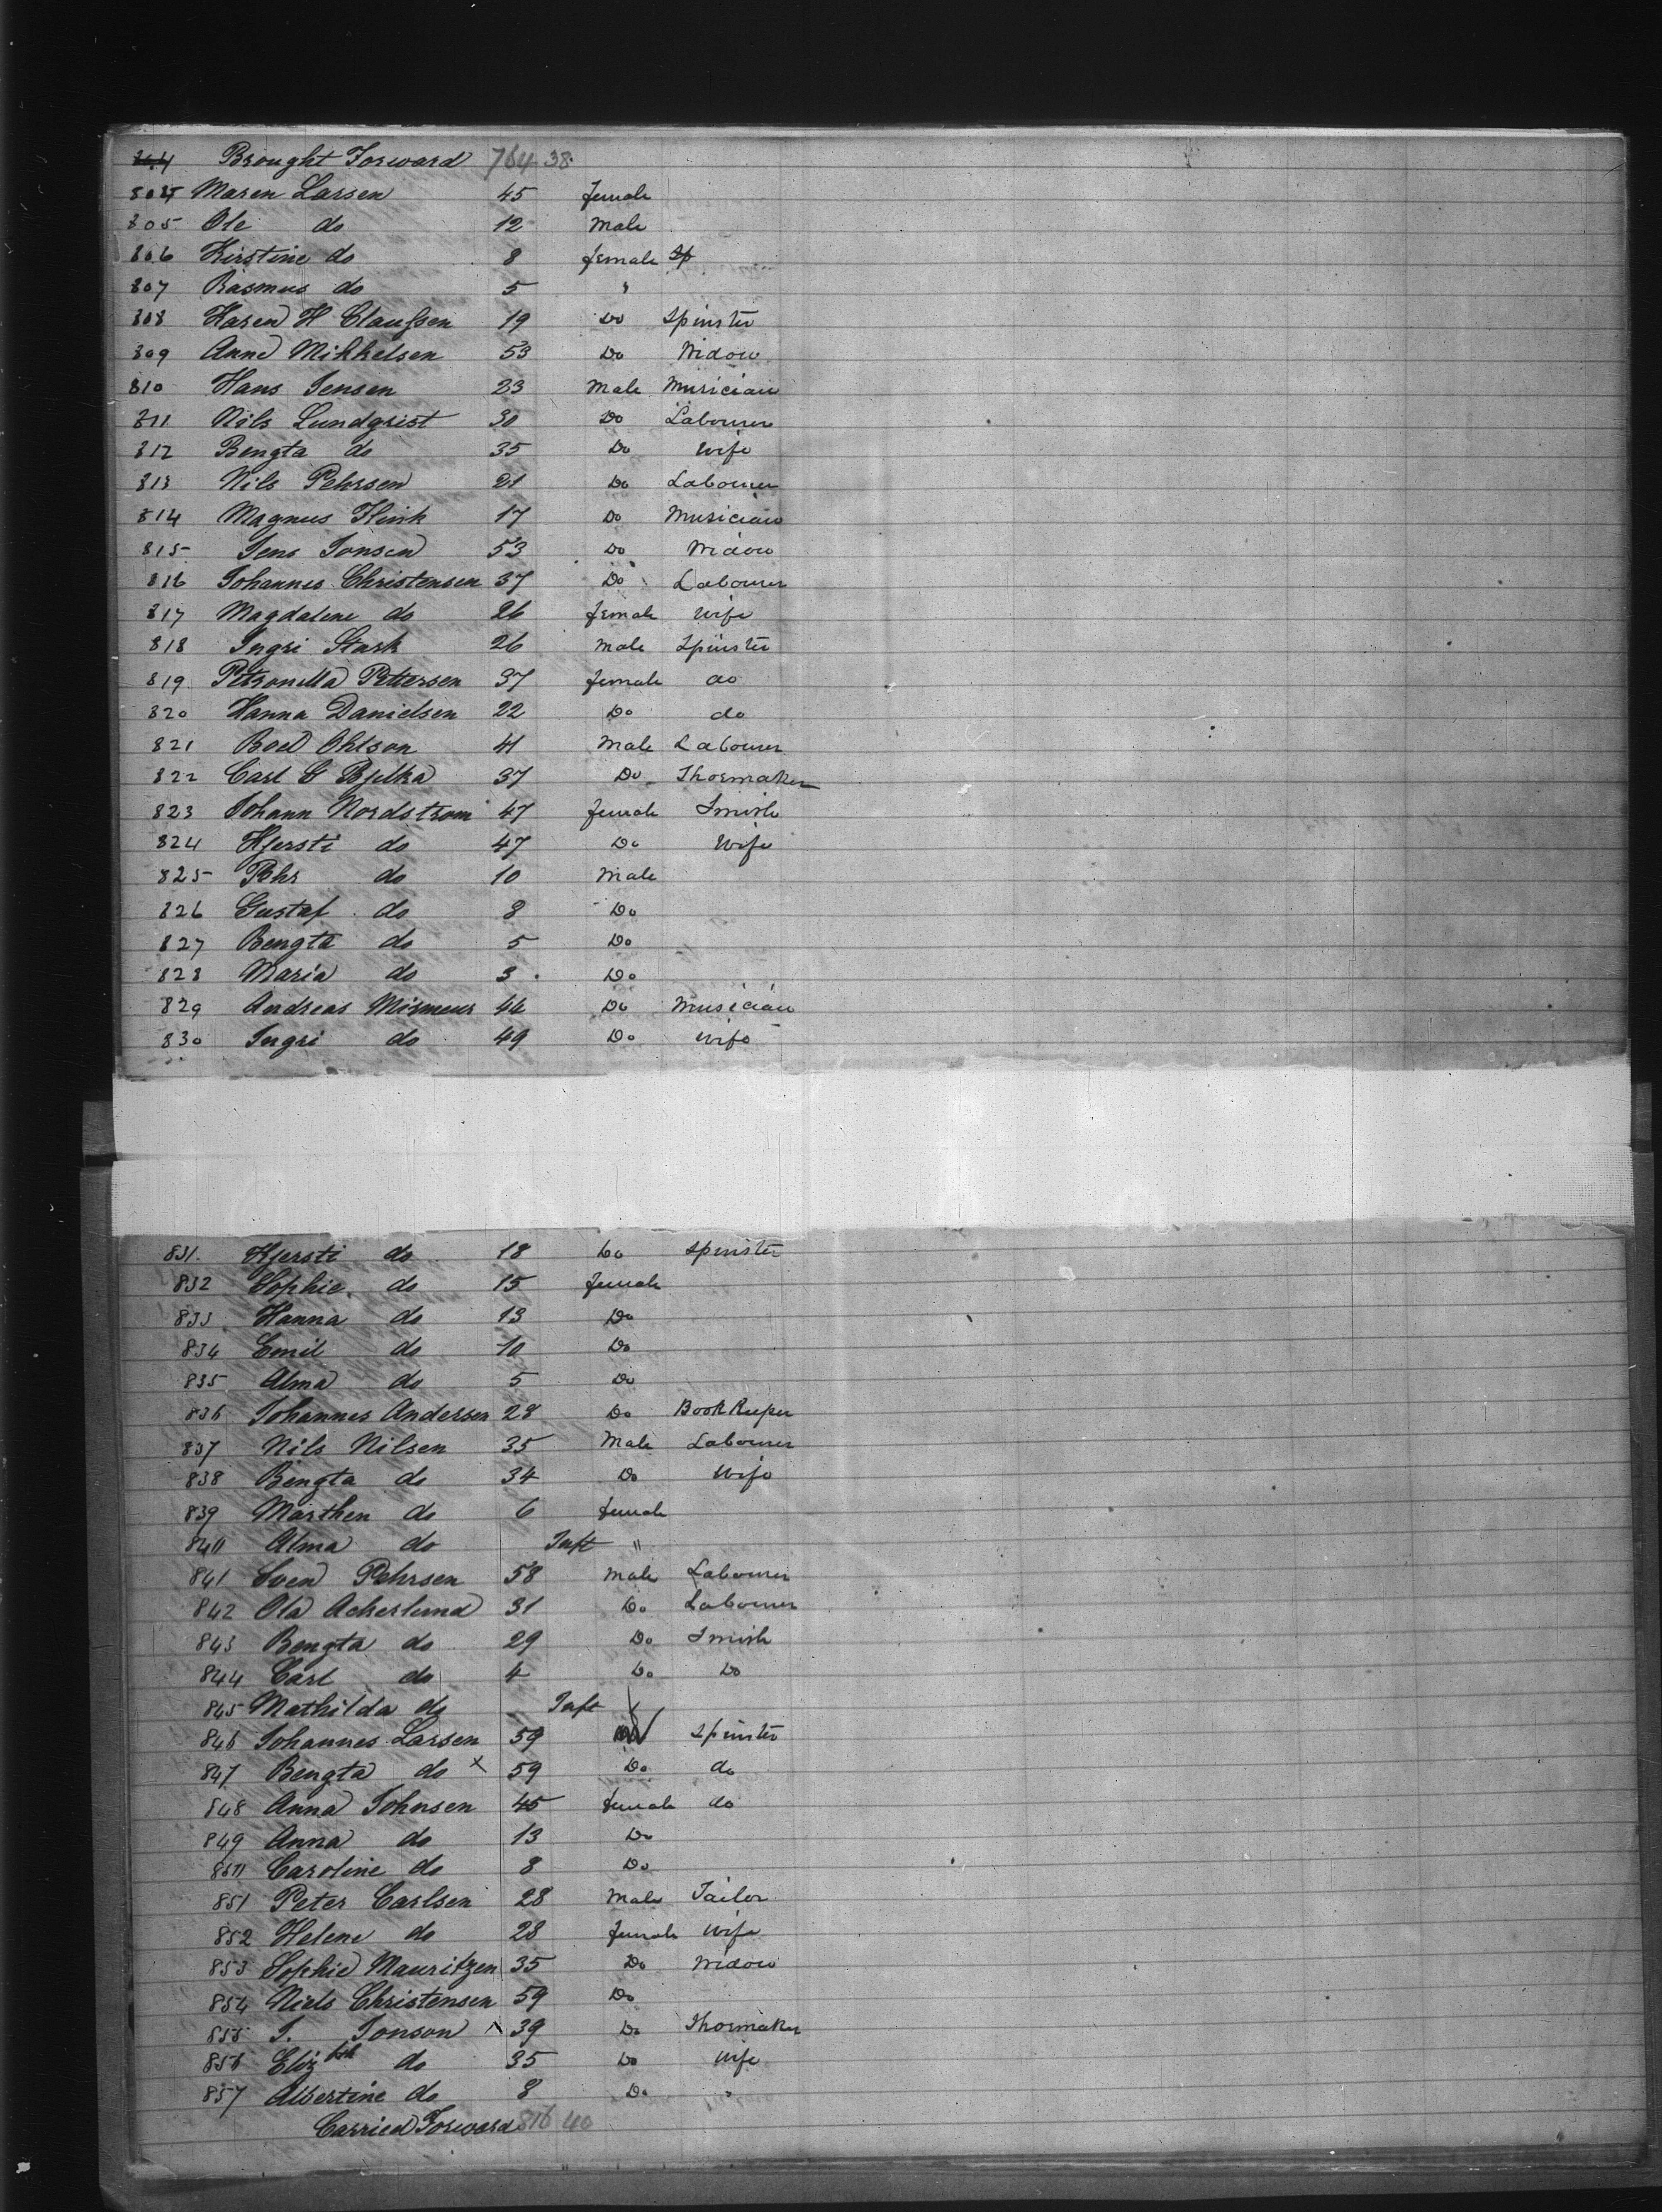 Brought Forward 764 38
804 Maren Larsen 45 female
805 Ole do 12 Male
806 Kirstine do 8 female Sp
807 Rasmus do 5 "
808 Karen H Claussen 19 Do Spinster
809 Anne Mikkelsen 53 Do Widow
810 Hans Jensen 23 Male Musician
811 Nils Lundqrist 30 Do Labourer
812 Bengta do 35 Do Wife
813 Nils Pehrsen 21 Do Labourer
814 Magnus Flink 17 Do Musician
815 Jens Jonsen 53 Do Widow
816 Johannes Christensen 37 Do Labourer
817 Magdalene do 26 female Wife
818 Ingri Stark 26 Male Spinster
819 Petronella Pettersen 37 female do
820 Hanna Danielsen 22 Do do
821 Boel Ohlson 41 Male Labourer
822 Carl G Bjelka 37 Do Shoemaker
823 Johann Nordstrom 47 female Smith
824 Kjersti do 47 Do Wife
825 Pehr do 10 Male
826 Gustaf do 8 Do
827 Bengta do 5 Do
828 Maria do 3 Do
829 Andreas 44 Do Musician
830 Ingri do 49 Do Wife
831 Kjersti do 18 Do Spinster
832 Sophie do 15 female
833 Hanna do 13 Do
834 Emil do 10 Do
835 Alma do 5 Do
836 Johannes Andersen 28 Do Book Keeper
837 Nils Nilsen 35 Male Labourer
838 Bengta do 34 Do Wife
839 Marthen do 6 female
840 Alma do Inft "
841 Sven Pehrsen 58 Male Labourer
842 Ola Ackerlund 31 Do Labourer
843 Bengta do 29 Do Smith
844 Carl do 4 Do Do
845 Mathilda do Inft
846 Johannes Larsen 59 Spinster
847 Bengta do x 59 Do do
848 Anna Johnsen 45 female do
849 Anna do 13 Do
850 Caroline do 8 Do
851 Peter Carlsen 28 Male Tailor
852 Helene do 28 female Wife
853 Sophie Mauritzen 35 Do Widow
854 Niels Christensen 59 Do
855 J. Jonson 39 Do Shoemaker
856 Elizbth do 35 Do Wife
857 Albertine do 8 Do "
Carried Forward 816 40